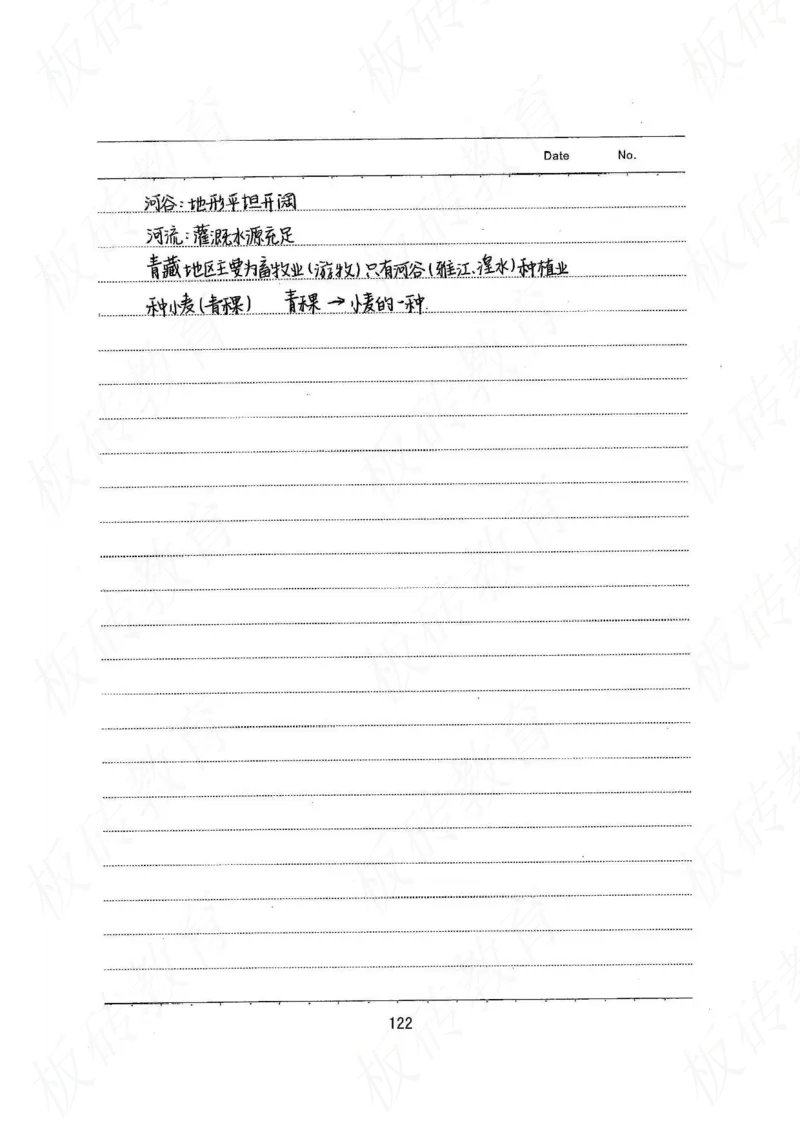 Date No.
河谷:地形平坦开阔
河流:灌溉水源充足
青藏地区主要为畜牧业(游牧)只有河谷(雅江、湟水)种植业
种小麦(青稞) 青稞→小麦的一种.
122
板砖教育